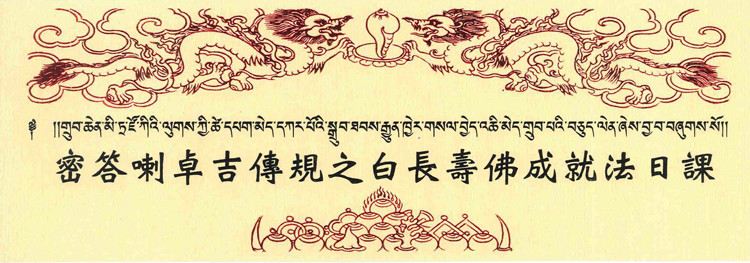 ༄ །།གྲུབ་ཆེན་མི་ཏྲ་ཛོ་ཀིའི་ལུགས་ཀྱི་ཚེ་དཔག་མེད་དཀར་པོའི་སྒྲུབ་ཐབས་རྒྱུན་ཁྱེར་གསལ་བྱེད་འཆི་མེད་གྲུབ་པའི་བཅུད་ལེན་ཞེས་བྱ་བ་བཞུགས་སོ།།
密答喇卓吉傳規之白長壽佛成就法日課